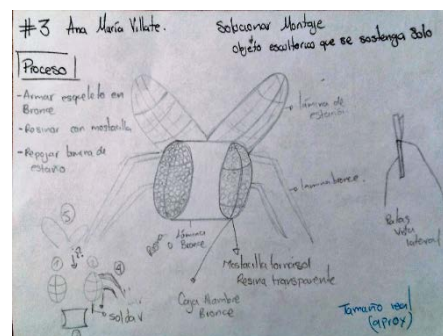 #3 Ana María Villate.
Solucionar Montaje
objeto escultorico que se sostenga solo
Proceso
- Armar esqueleto en
Bronce
- Resinar con mostacilla
- Repujar lamina de
estaño
lámina de
estaño
lamina bronce.
Patas
Vista
lateral
lámina
o Bronce
Mostacilla tornasol
Resina transparente
Caja Alambre
Bronce
soldar
Tamaño real
(aprox)